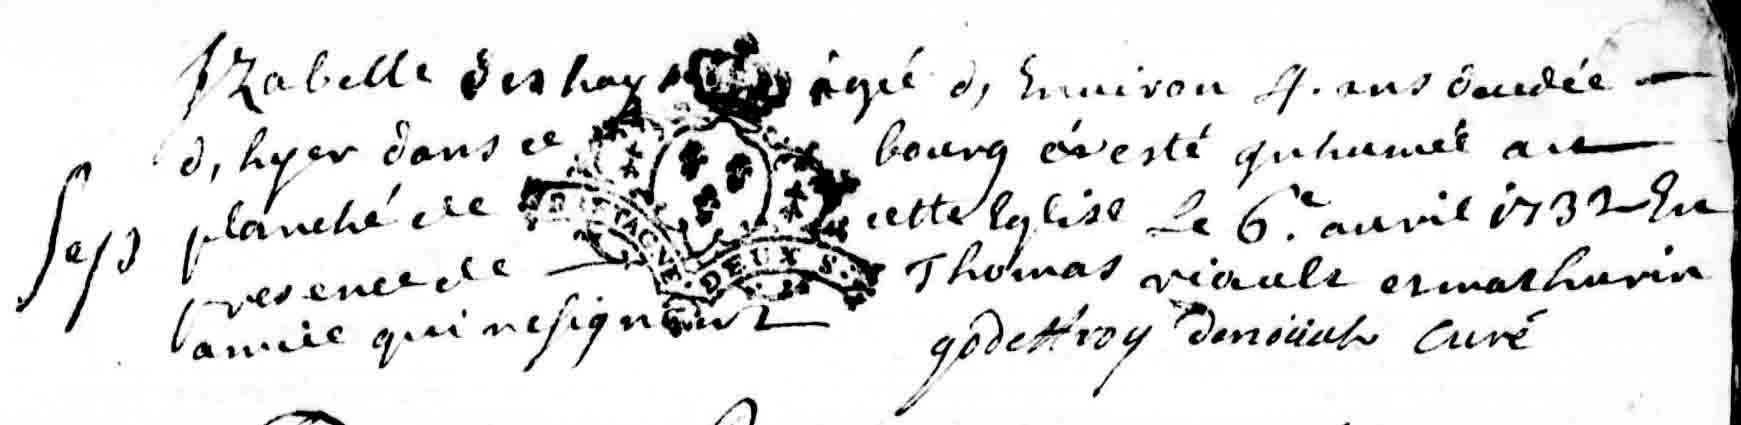 Izabelle deshays âgé d, Environ 4. ans decedée
d, hyer dans ce bourg à esté inhumée au
Sep planché de cette Eglise Le 6.e avril 1732 En
presence de Thomas riault et mathurin
amice qui ne signent godeffroy denoüal Curé
BRETAGNE · DEUX S.